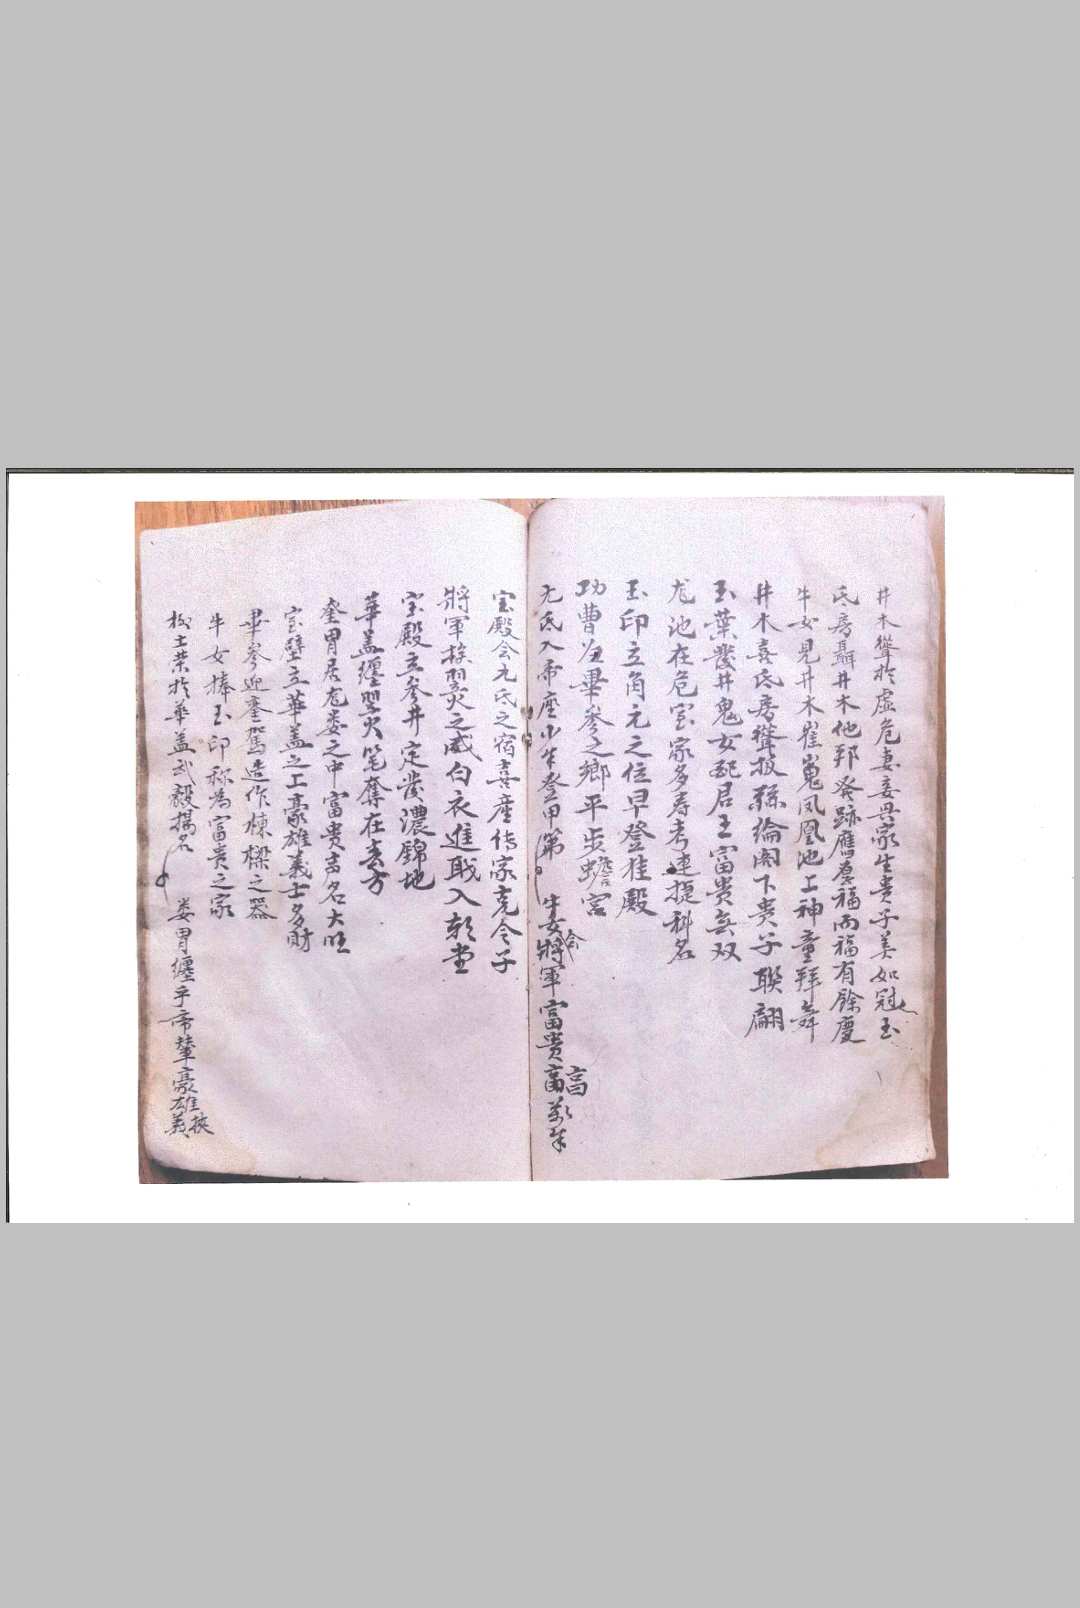 井木聳於虛危妻妾興家生貴子美如冠玉
氐房聶井木他邦發跡應居福而福有餘慶
牛女見井木崔嵬鳳凰池上神童拜舞
井木喜氐房聳拔絲綸閣下貴子聯翩
玉葉發井鬼女配君王富貴無双
龙池在危室家多寿考連捷科名
玉印立角亢之位早登桂殿
功曹归畢參之鄉平步蟾宮
亢氐入帝座少年登甲第 牛女会將軍富貴高萬年
宝殿会亢氐之宿喜產传家克令子
將軍挨翌火之威白衣進職入朝堂
宝殿立参井定發濃錦地
華盖纏翌火笔奪在玄方
奎胃居龙娄之中富贵高名大旺
室壁立華盖之上豪雄義士多財
畢參迎鑾駕造作棟樑之器
牛女捧玉印称為富贵之家
柳土荣於華盖武毅揚名 娄胃纏乎帝輦豪雄挾義